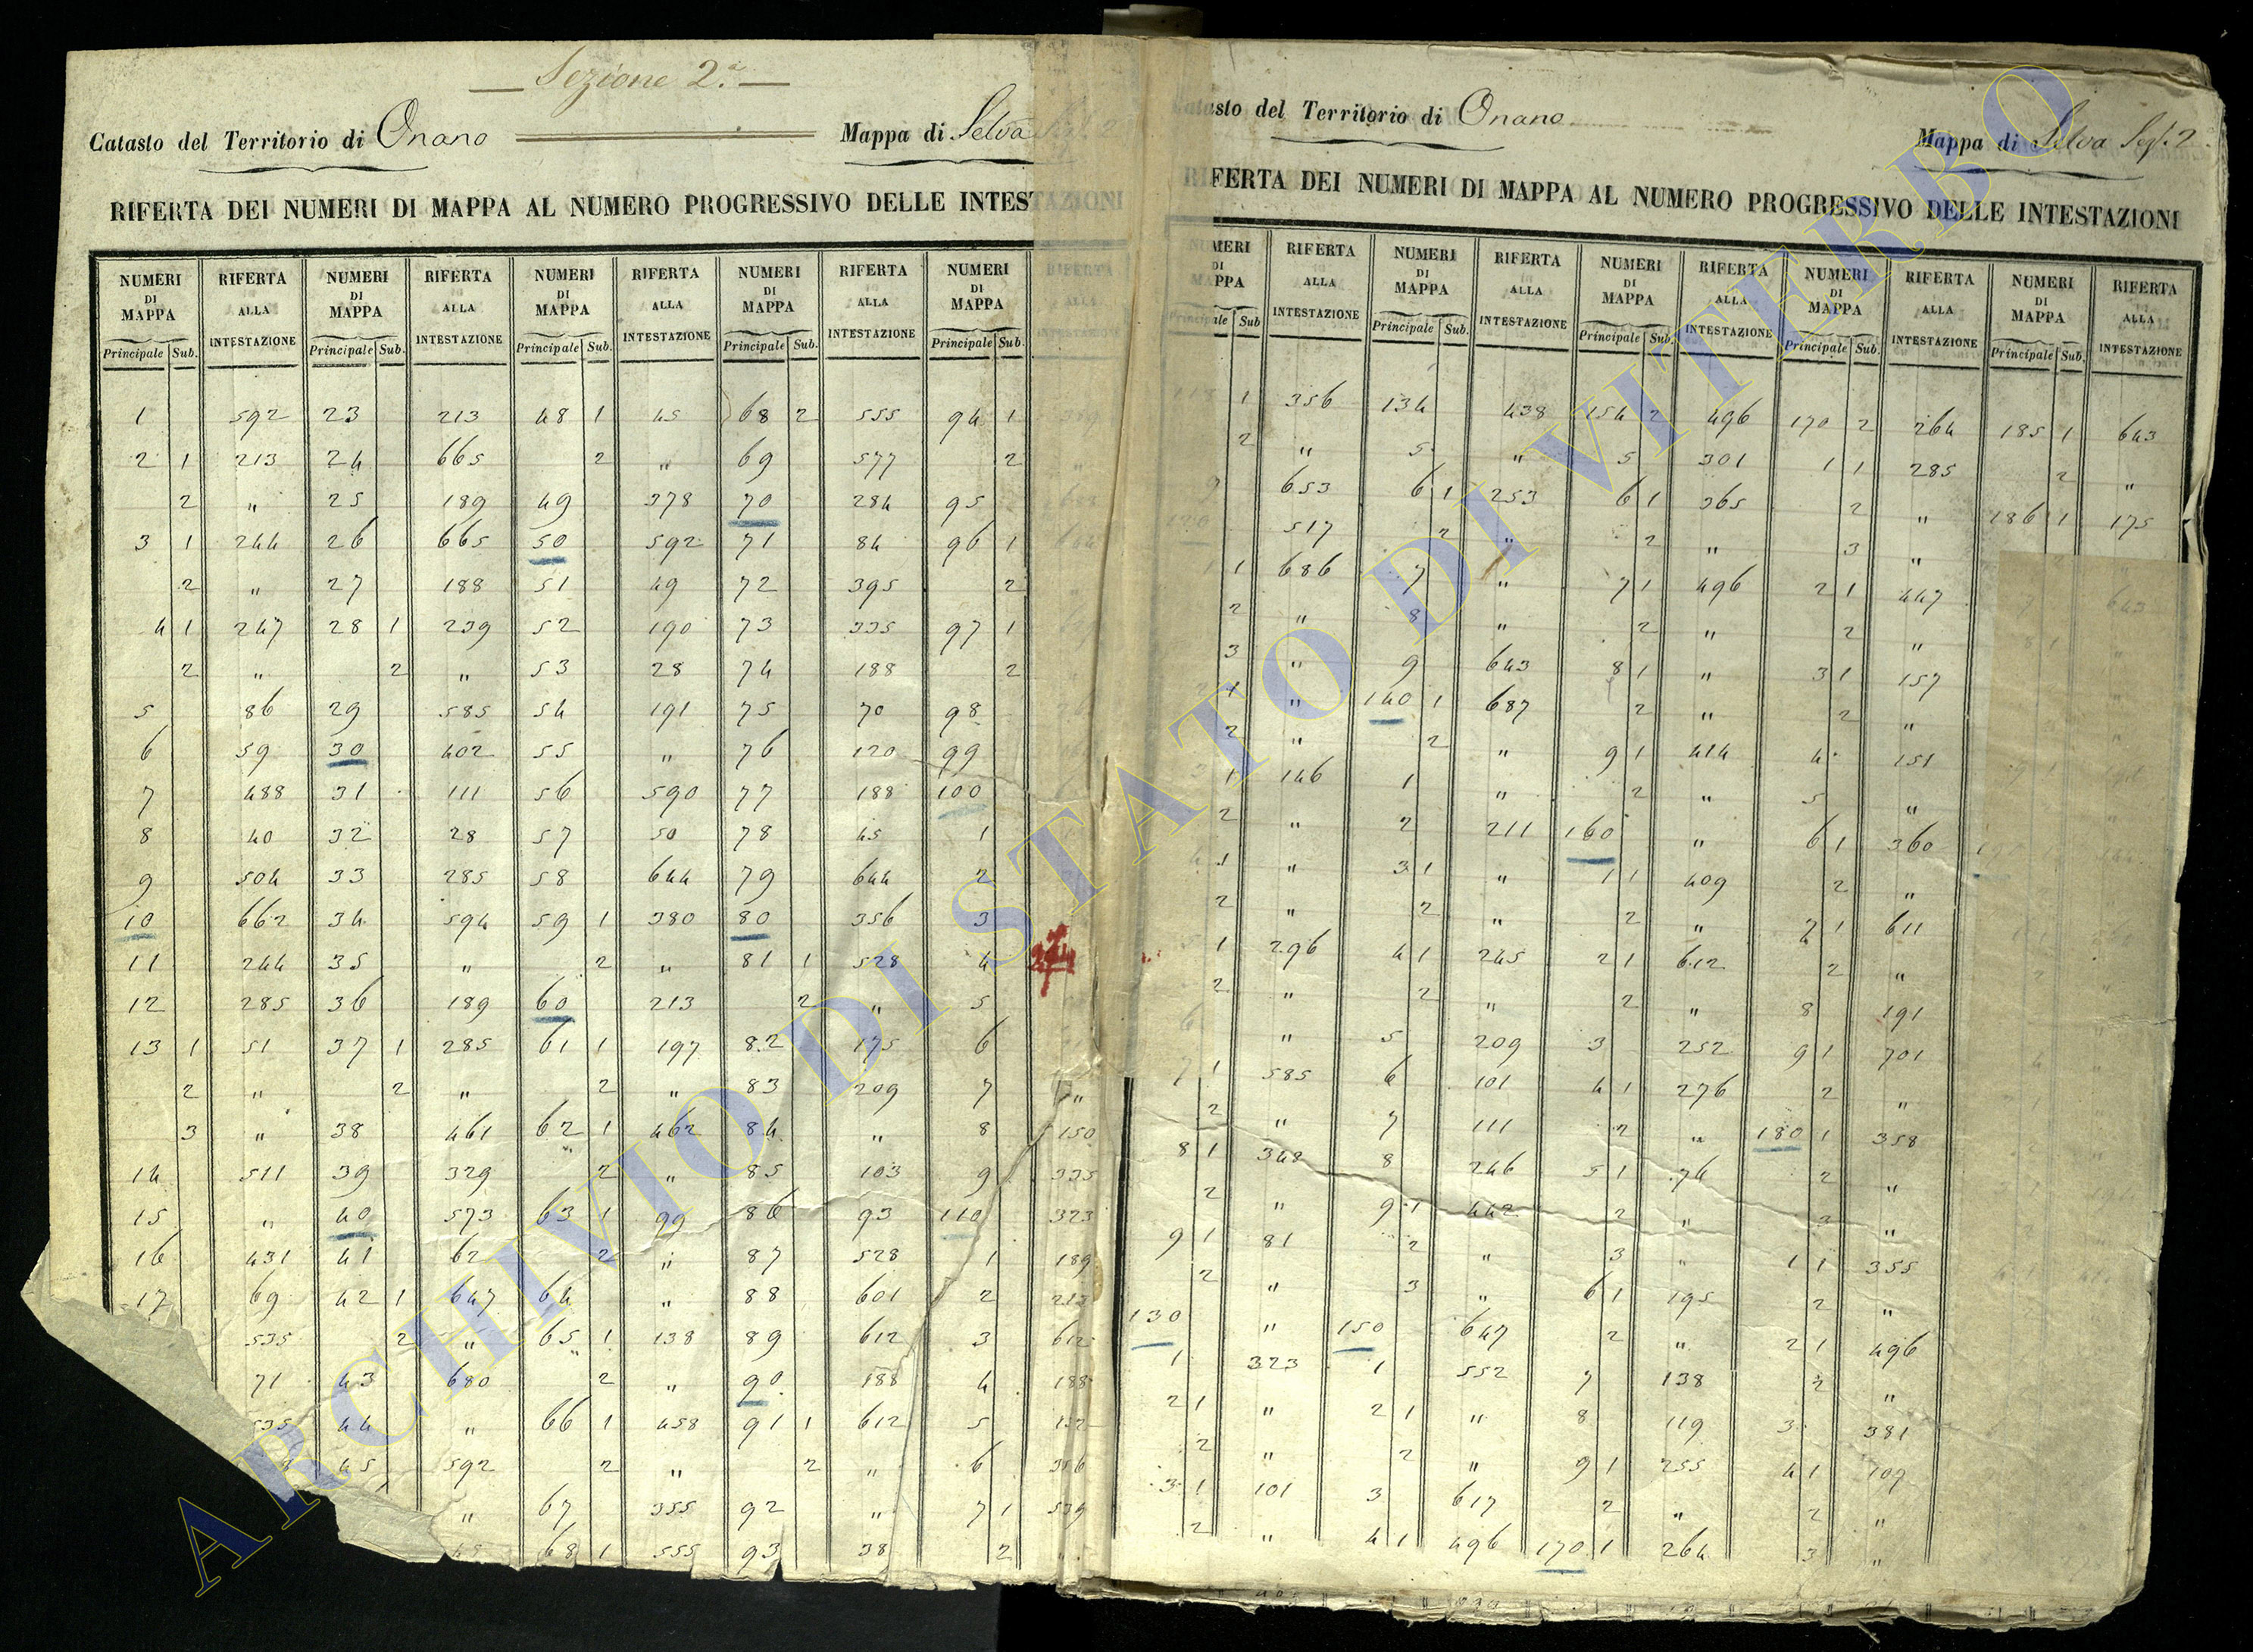 Sezione 2.a
Catasto del Territorio di Onano
Mappa di Selva
RIFERTA DEI NUMERI DI MAPPA AL NUMERO PROGRESSIVO DELLE INTESTAZIONI
NUMERI DI MAPPA RIFERTA ALLA INTESTAZIONE NUMERI DI MAPPA RIFERTA ALLA INTESTAZIONE NUMERI DI MAPPA RIFERTA ALLA INTESTAZIONE NUMERI DI MAPPA RIFERTA ALLA INTESTAZIONE NUMERI DI MAPPA RIFERTA ALLA INTESTAZIONE
Principale Sub. Principale Sub. Principale Sub. Principale Sub. Principale Sub.
1 592 23 213 48 1 45 68 2 555 94 1
2 1 213 24 665 2 " 69 577 2
2 " 25 189 49 378 70 284 95
3 1 244 26 665 50 592 71 84 96 1
2 " 27 188 51 49 72 395 2
4 1 247 28 1 239 52 190 73 335 97 1
2 " 2 " 53 28 74 188 2
5 86 29 585 54 191 75 70 98
6 59 30 402 55 " 76 120 99
7 488 31 111 56 590 77 188 100
8 40 32 28 57 50 78 45 1
9 504 33 285 58 644 79 644 2
10 662 34 594 59 1 380 80 356 3
11 244 35 " 2 " 81 1 528 4
12 285 36 189 60 213 2 " 5
13 1 51 37 1 285 61 1 197 82 175 6
2 " 2 " 2 " 83 209 7 "
3 " 38 461 62 1 462 84 " 8 150
14 511 39 329 2 " 85 103 9 335
15 " 40 573 63 1 99 86 93 110 323
16 431 41 62 2 " 87 528 1 189
17 69 42 1 647 64 " 88 601 2 213
535 2 " 65 1 138 89 612 3 612
71 43 680 2 " 90 188 4 188
535 44 " 66 1 458 91 1 612 5
45 592 2 " 2 " 6 356
" 67 355 92 " 7 1 539
68 1 555 93 38 2 "
Catasto del Territorio di Onano
Mappa di Selva Sez. 2
RIFERTA DEI NUMERI DI MAPPA AL NUMERO PROGRESSIVO DELLE INTESTAZIONI
NUMERI DI MAPPA RIFERTA ALLA INTESTAZIONE NUMERI DI MAPPA RIFERTA ALLA INTESTAZIONE NUMERI DI MAPPA RIFERTA ALLA INTESTAZIONE NUMERI DI MAPPA RIFERTA ALLA INTESTAZIONE NUMERI DI MAPPA RIFERTA ALLA INTESTAZIONE
Principale Sub Principale Sub. Principale Sub. Principale Sub. Principale Sub.
118 1 356 134 438 154 2 496 170 2 264 185 1 643
2 " 5 " 5 301 1 1 285 2 "
9 653 6 1 253 6 1 365 2 " 186 1 175
517 2 " 2 " 3 "
1 686 7 " 7 1 496 2 1 447
2 " 8 " 2 " 2 "
3 " 9 643 8 1 " 3 1 157
1 " 140 1 687 2 " 2 "
2 " 2 " 9 1 414 4 151
1 146 1 " 2 " 5 "
2 " 2 211 160 " 6 1 360
1 " 3 1 " 1 1 409 2 "
2 " 2 " 2 " 7 1 611
1 296 4 1 245 2 1 612 2 "
2 " 2 " 2 " 8 191
" 5 209 3 252 9 1 701
7 1 585 6 101 4 1 276 2 "
2 " 7 111 2 " 180 1 358
8 1 348 8 246 5 1 74 2 "
2 " 9 1 442 2 " 3 "
9 1 81 2 " 3 " 1 1 355
2 " 3 " 6 1 195 2 "
130 " 150 647 2 " 2 1 496
1 323 1 552 7 138 2 "
2 1 " 2 1 " 8 119 3 381
2 " 2 " 9 1 255 4 1 107
3 1 101 3 617 2 " 2 "
2 " 4 1 496 170 1 264 3 "
ARCHIVIO DI STATO DI VITERBO